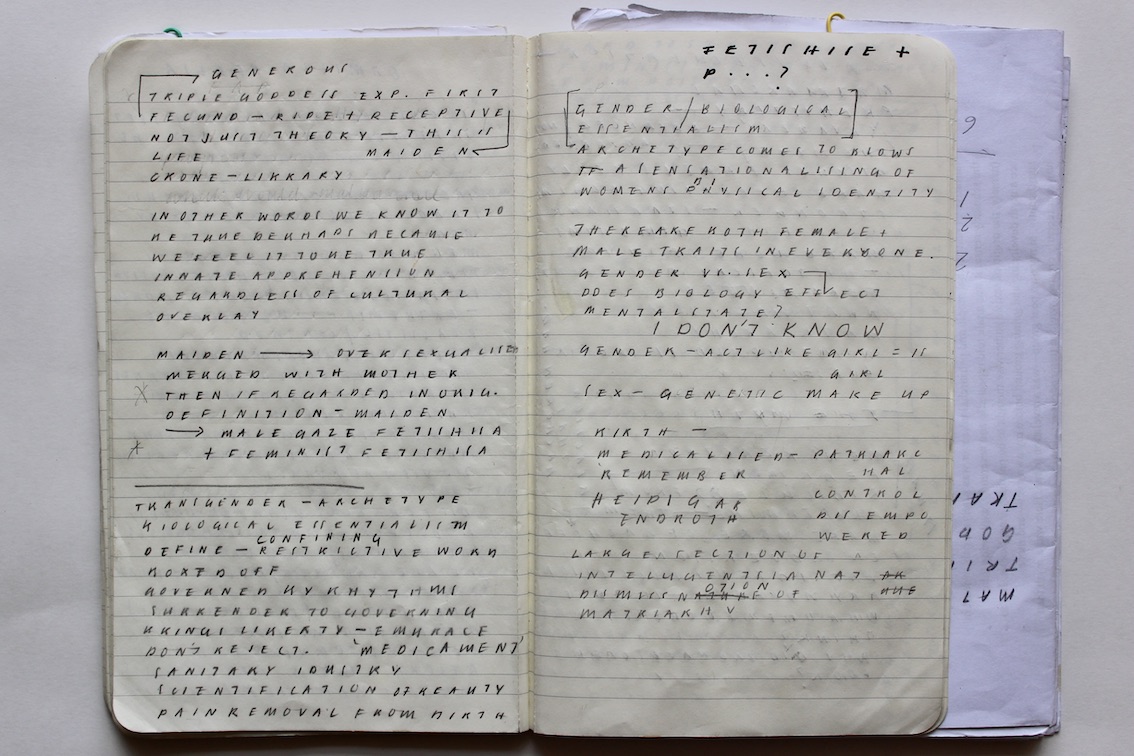 GENEROUS
TRIPLE GODDESS EXP. FIRST
FECUND — RIDE + RECEPTIVE
NOT JUST THEORY — THIS IS
LIFE MAIDEN
CRONE — LIBRARY
IN OTHER WORDS WE KNOW IT TO
BE TRUE PERHAPS BECAUSE
WE FEEL IT TO BE TRUE
INNATE APPREHENSION
REGARDLESS OF CULTURAL
OVERLAY
MAIDEN → OVERSEXUALISE
MERGED WITH MOTHER
THEN IF REGARDED IN ORIG.
DEFINITION — MAIDEN
→ MALE GAZE FETISHISA
+ FEMINIST FETISHISA
TRANSGENDER — ARCHETYPE
BIOLOGICAL ESSENTIALISM
CONFINING
DEFINE — RESTRICTIVE WORD
BOXED OFF
GOVERNED BY RHYTHMS
SURRENDER TO GOVERNING
BRINGS LIBERTY — EMBRACE
DON'T REJECT. 'MEDICAMENT'
SANITARY IDUSTRY
SCIENTIFICATION OF BEAUTY
PAIN REMOVAL FROM BIRTH
FETISHISE +
P...?
[GENDER/BIOLOGICAL
ESSENTIALISM]
ARCHETYPE COMES TO BLOWS
A SENSATIONALISING OF
WOMENS PHYSICAL IDENTITY
THERE ARE BOTH FEMALE +
MALE TRAITS IN EVERYONE.
GENDER VS. SEX
DOES BIOLOGY EFFECT
MENTAL STATE?
I DON'T KNOW
GENDER — ACT LIKE GIRL = IS
GIRL
SEX — GENETIC MAKE UP
BIRTH —
MEDICALISED — PATRIARC
REMEMBER HAL
HEIDI GAB CONTROL
ENDROTH DISEMPO
WERED
LARGE SECTION OF
INTELLIGENTSIA
OTION
DISMISS NATURE OF
MATRIARHY
TRAI
GOD
TRI
MAT